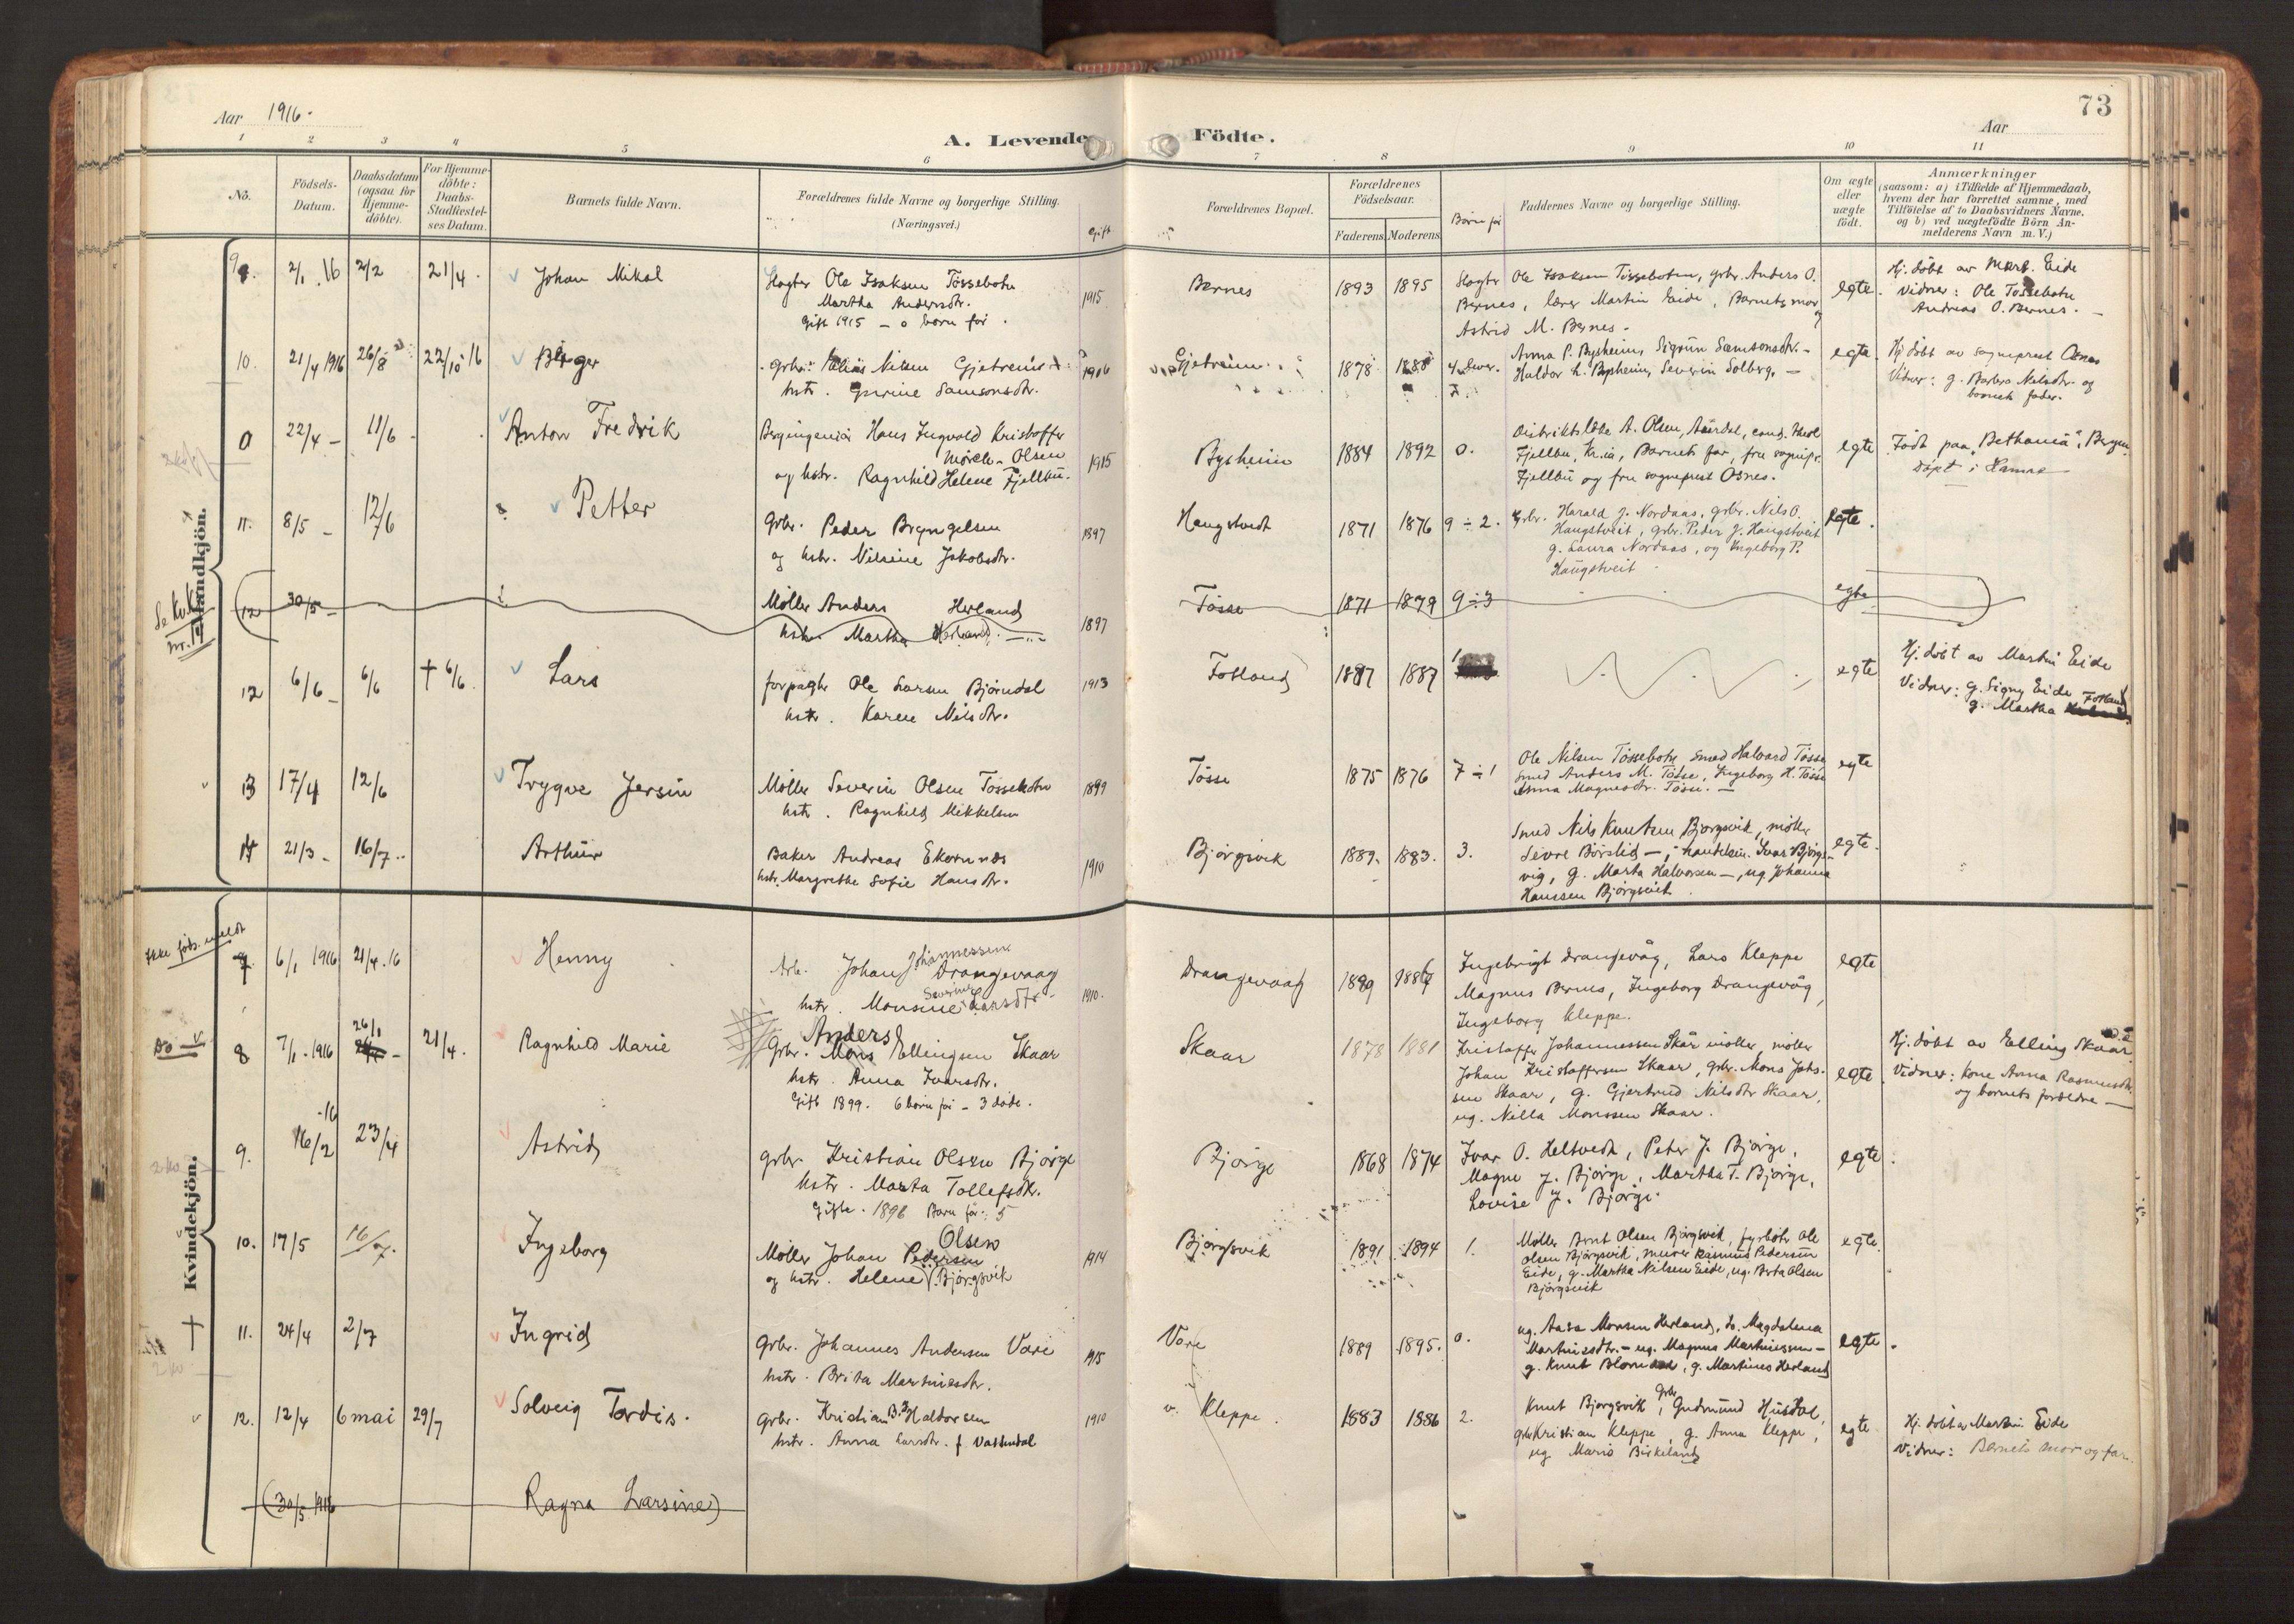 73
Aar 1916.
A. Levende Födte.
Aar
1 2 3 4 5 6 7 8 9 10 11
No.
Födsels-
Datum.
Daabsdatum
(ogsaa for
Hjemme-
döbte).
For Hjemme-
döbte:
Daabs-
Stadfæstel-
ses Datum.
Barnets fulde Navn.
Forældrenes fulde Navne og borgerlige Stilling.
(Næringsvei.)
Gift
Forældrenes Bopæl.
Forældrenes
Födselsaar.
Faderens Moderens
Børn før
Faddernes Navne og borgerlige Stilling.
Om ægte
eller
uægte
födt.
Anmærkninger
(saasom: a) i Tilfælde af Hjemmedaab,
hvem der har forrettet samme, med
Tilföielse af to Daabsvidners Navne,
og b) ved uægtefödte Börn An-
melderens Navn m. V.)
Mandkjön.
9. 2/1 16 2/2 21/4. Johan Mikal
Slagter Ole Isaksen Tössebotn
Martha Andersdtr.
Gift 1915 – 0 børn før.
1915
Bernes 1893 1895
Slagter Ole Isaksen Tössebotn, grbr. Anders O.
Bernes, lærer Martin Eide, Barnets mor
og
Astrid M. Bernes.
egte.
Hj. döbt av Mart. Eide
Vidner: Ole Tössebotn
Andreas O. Bernes.
10. 21/4 1916 26/8 22/10 16 Birger
Grbr. Elias Nilsen Gjetreim
hstr. Gurine Samsonsdtr.
Gjetreim 1878
Anna P. Bysheim, Sigrun Samsonsdtr. –
Haldor h. Bysheim, Severin Solberg. –
egte.
Hj. döbt av sogneprest Osnes
Vidner: g. Barbro Nilsdtr. og
barnets fader.
0 22/4 – 11/6 – Anton Fredrik
Bergingeniör Hans Ingvald Kristoffer
Mörch-Olsen
og hstr. Ragnhild Helene Fjellbu.
1915
Bysheim 1884 1892 0.
Distriktslæge A. Olsen, Aardal, cand.
Fjellbu, Kr.ia, Barnets far, fru sognepr.
Fjellbu og fru sogneprest Osnes.
egte
Födt paa "Bethania", Bergen
döpt i Hamre
11. 8/5 – 12/6 Petter
Grbr. Peder Bryngelsen
og hstr. Nilsine Jakobsdtr.
1897
Haugstvedt 1871 1876 9 ÷ 2.
Grbr. Harald J. Nordaas, grbr. Nils O.
Haugstveit, grbr. Peder J. Haugstveit
g. Laura Nordaas, og Ingeborg P.
Haugstveit
Egte.
Se kv.k.
nr. 13
12 30/5 –
Möller Anders Herland
hstr. Martha Herland.
1897
Tösse 1871 1879 9÷3 egte
12 6/6 – 6/6 † 6/6. Lars
forpagtr Ole Larsen Björndal
hstr. Karen Nilsdtr.
1913
Fotland 1887 1887 1
egte
Hj. döbt av Martin Eide
Vidner: g. Signy Eide
g. Martha Fotland
13 17/4 12/6 Trygve Jersin
Möller Severin Olsen Tössebotn
hstr. Ragnhild Mikkelsen
1899
Tösse 1875 1876 7 ÷ 1
Ole Nilsen Tössebotn smed Halvard Tösse
smed Anders M. Tösse, Ingeborg H. Tösse
Anna Magnesdtr. Tösse. –
egte
14 21/3 – 16/7 Arthur
Baker Andreas Ekornnæs
hstr. Margrethe Sofie Hansdtr.
1910
Bjørgsvik 1889. 1883. 3.
Smed Nils Knutsen Bjørgsvik, möller
Sivre Börslid –, handelsm. Ivar Bjørgs-
vig, g. Marta Halvorsen –, ug. Johanna
Hanssen Bjørgsvik.
egte.
Kvindekjön.
Ikke föds. meldt
7. 6/1 1916 21/4.16 Henny
Arb. Johan Johannessen
Drangevaag
hstr. Monsine Severine Larsdtr.
1910.
Drangevaag 1889
Ingebrigt Drangevåg, Lars Kleppe
Magnus Bernes, Ingeborg Drangevåg,
Ingeborg Kleppe.
egte
8 7/1 – 1916 26/1 21/4. Ragnhild Marie
Anders
Grbr. Mons Ellingsen Skaar
hstr. Anna Ivarsdtr.
Gift 1899. 6 børn før – 3 döde.
Skaar 1878 1881
Kristoffer Johannessen Skår möller, möller
Johan Kristoffersen Skaar, grbr. Mons Johs-
sen Skaar, g. Gjertrud Nilsdtr Skaar,
ug. Nilla Monssen Skaar.
egte
Hj. döbt av Elling Skaar
Vidner: kone Anna Rasmusdtr.
og barnets forældre –
9. 16/2 -16 23/4 Astrid
Grbr. Kristian Olsen Bjørge
hstr. Marta Tollefsdtr.
Gifte. 1896 Barn før: 5
Bjørge 1868 1874
Ivar O. Heltvedt, Peter J. Bjørge,
Magne J. Bjørge, Martha T. Bjørge,
Lovise J. Bjørge.
egte.
10. 17/5 16/7. Ingeborg
Möller Johan Pedersen Olsen
og hstr. Helene Bjørgsvik
1914
Bjørgsvik 1891 1894 1.
Möller Brnt Olsen Bjørgsvik, fyrbøter Ole
Olsen Bjørgsvik, murer Rasmus Pedersen
Eide, g. Martha Nilsen Eide, ug. Berta Olsen
Bjørgsvik
egte.
† 11. 24/4 2/7 Ingrid
Grbr. Johannes Andersen Vare
hstr. Brita Martinesdtr.
1915
Vare 1889 1895. 0.
ug. Aasa Monsen Herland, do. Magdalena
Martinesdtr. – ug. Magnus Martinussen –
g. Knut , g. Martines Herland
egte.
12. 12/4 6 mai 29/7 Solveig Tordis.
Grbr. Kristian B. Haldorsen
hstr. Anna Larsdtr. f. Vassendal
1910
Kleppe. 1883 1886 2.
Knut Bjørgsvik, Grbr Gudmund Husdal,
grbr Kristian Kleppe, g. Anna Kleppe,
ug Marie Birkeland
egte
Hj. döbt av Martin Eide
Vidner: Barnets mor og far.
(30/5 1916 Ragna Larsine)